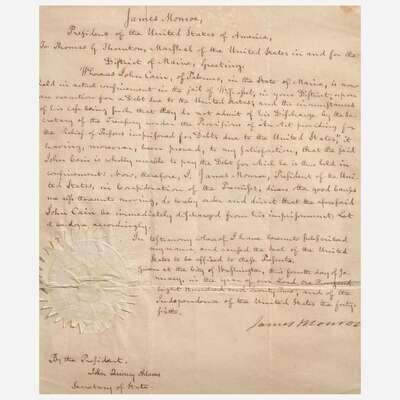 James Monroe,
President of the United States of America,
To Thomas G Thornton, Marshal of the United States in and for the
District of Maine, Greeting.
Whereas John Cain, of Palermo, in the State of Maine, is now
held in actual confinement in the jail of Wiscasset, in your District, upon
an execution for a Debt due to the United States; and the circumstances
of his case being such that they do not admit of his Discharge, by the Sec-
retary of the Treasury under the Provisions of "An Act providing for
the relief of Persons imprisoned for Debts due to the United States," it
having, moreover, been proved, to my satisfaction, that the said
John Cain is wholly unable to pay the Debt for which he is thus held in
confinement: Now, therefore, I James Monroe, President of the Uni-
ted States, in Consideration of the Premises, divers other good causes
me thereunto moving, do hereby order and direct that the aforesaid
John Cain be immediately discharged from his imprisonment. Let
it be done accordingly.
In testimony whereof I have hereunto subscribed
my name and caused the Seal of the United
States to be affixed to these Presents.
Given at the City of Washington, this fourth day of Ja-
nuary, in the year of our Lord One Thousand
Eight Hundred and Twenty One, and of the
Independence of the United States the forty-
fifth.
James Monroe
By the President,
John Quincy Adams
Secretary of State.